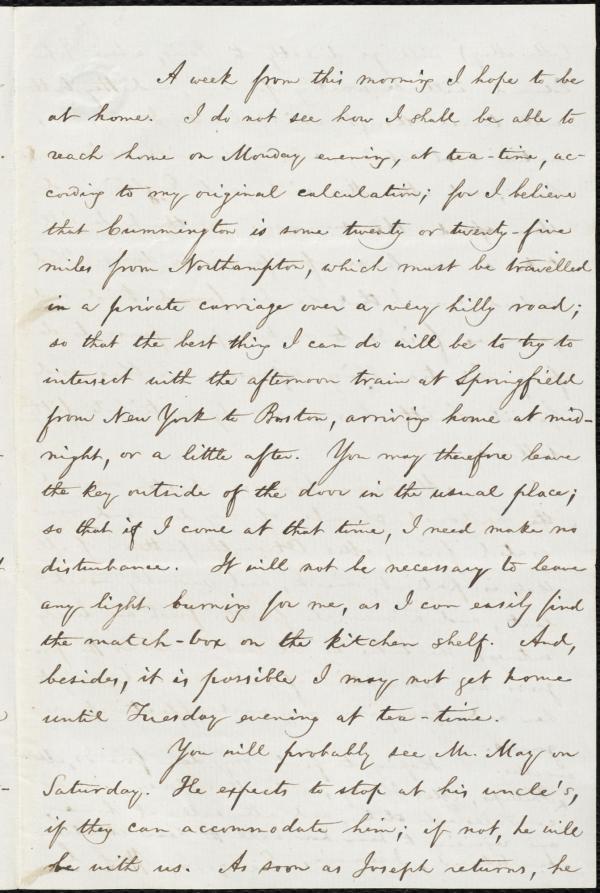 A week from this morning I hope to be
at home. I do not see how I shall be able to
reach home on Monday evening, at tea-time, ac-
cording to my original calculation; for I believe
that Cummington is some twenty or twenty-five
miles from Northampton, which must be travelled
in a private carriage over a very hilly road;
so that the best thing I can do will be to try to
intersect with the afternoon train at Springfield
from New York to Boston, arriving home at mid-
night, or a little after. You may therefore leave
the key outside of the door in the usual place;
so that if I come at that time, I need make no
disturbance. It will not be necessary to leave
any light burning for me, as I can easily find
the match-box on the kitchen shelf. And,
besides, it is possible I may not get home
until Tuesday evening at tea-time.
You will probably see Mr. May on
Saturday. He expects to stop at his uncle's,
if they can accommodate him; if not, he will
be with us. As soon as Joseph returns, he